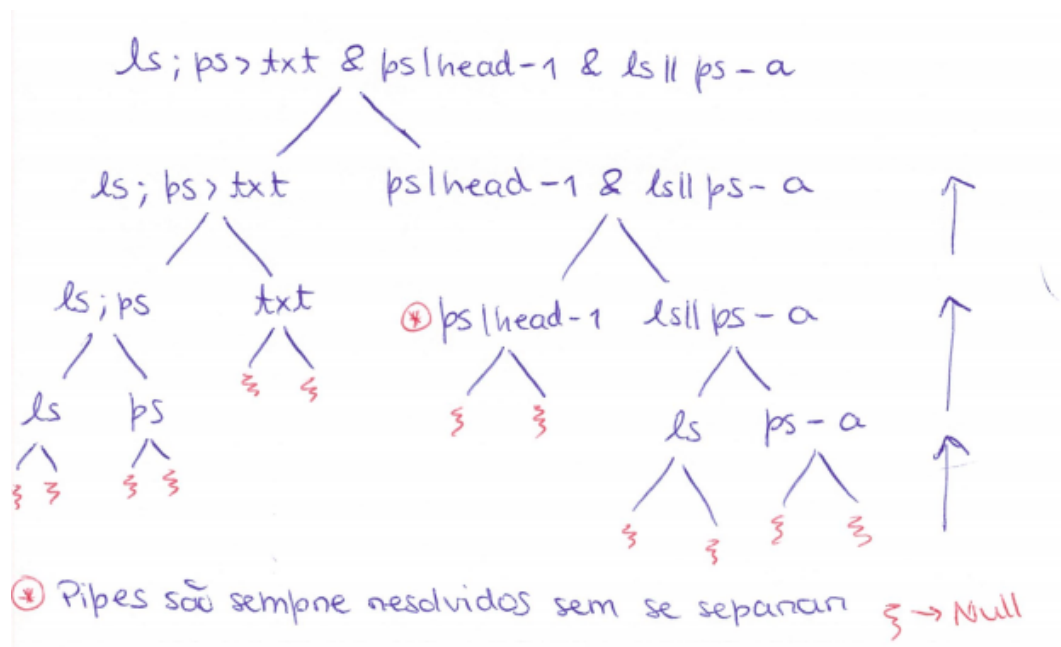 ls; ps > txt & ps|head-1 & ls || ps - a
ls; ps > txt ps|head -1 & ls|| ps- a
ls; ps txt * ps |head-1 ls|| ps - a
ξ ξ
ls ps ξ ξ ls ps - a
ξ ξ ξ ξ ξ ξ ξ ξ
* Pipes são sempre resolvidos sem se separar ξ → Null